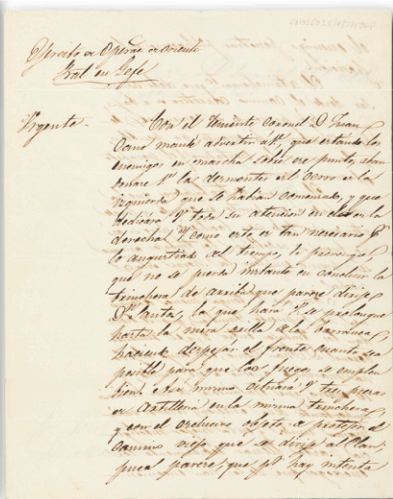 Ejercito de Operac. de Oriente
Gral. en Gefe
Urgente.
Con el Teniente coronel D. Juan
Cano mandé advertir a V. que estando los
enemigos en marcha sobre ese punto, aban
donase V. los desmontes del cerro de la
izquierda que se habian comenzado, y que
dedicára V. toda su atencion en el de la
derecha. Y como esto es tan necesario p.r
lo angustiado del tiempo, le prevengo,
que no se pierda instante en concluir la
trinchera de arriba que parece dirije
D. la que hará V. se prolongue
hasta la mera orilla de la barranca,
haciendo despejar el frente cuanto sea
posible para que los fuegos se emplen
bien. Así mismo situará V. tres piezas
de Artilleria en la misma trinchera
y con el esclusivo objeto de protejer el
camino viejo que se dirije al Plan
pues al parecer, que p.r hay intenta